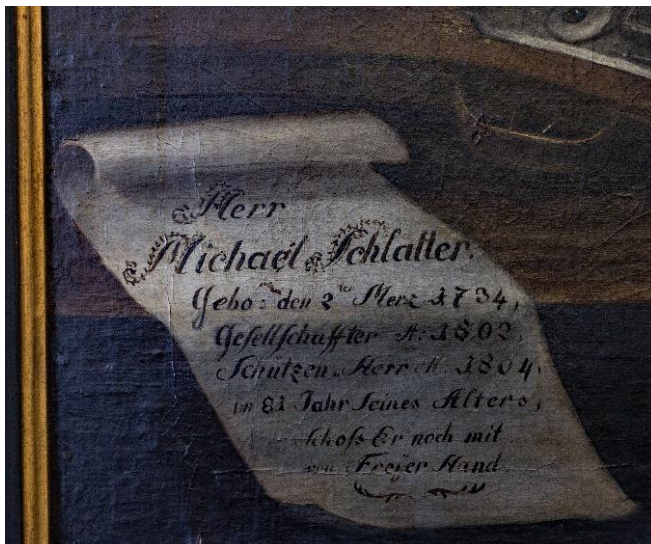 Herr
Michael Schlatter.
Gebo: den 2ten Merz 1734,
Gesellschaffter A: 1802,
Schützen Herr A: 1804.
im 81 Jahr seines Alters,
schoſs Er noch mit
von Freÿer Hand